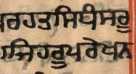 ਰਹਤਸਿਧੀਸਰੂ
ਜਿਹਰੂਪਰੇਖਨ